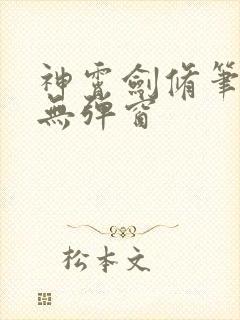 神霄劍脩筆
無彈窗
松本文